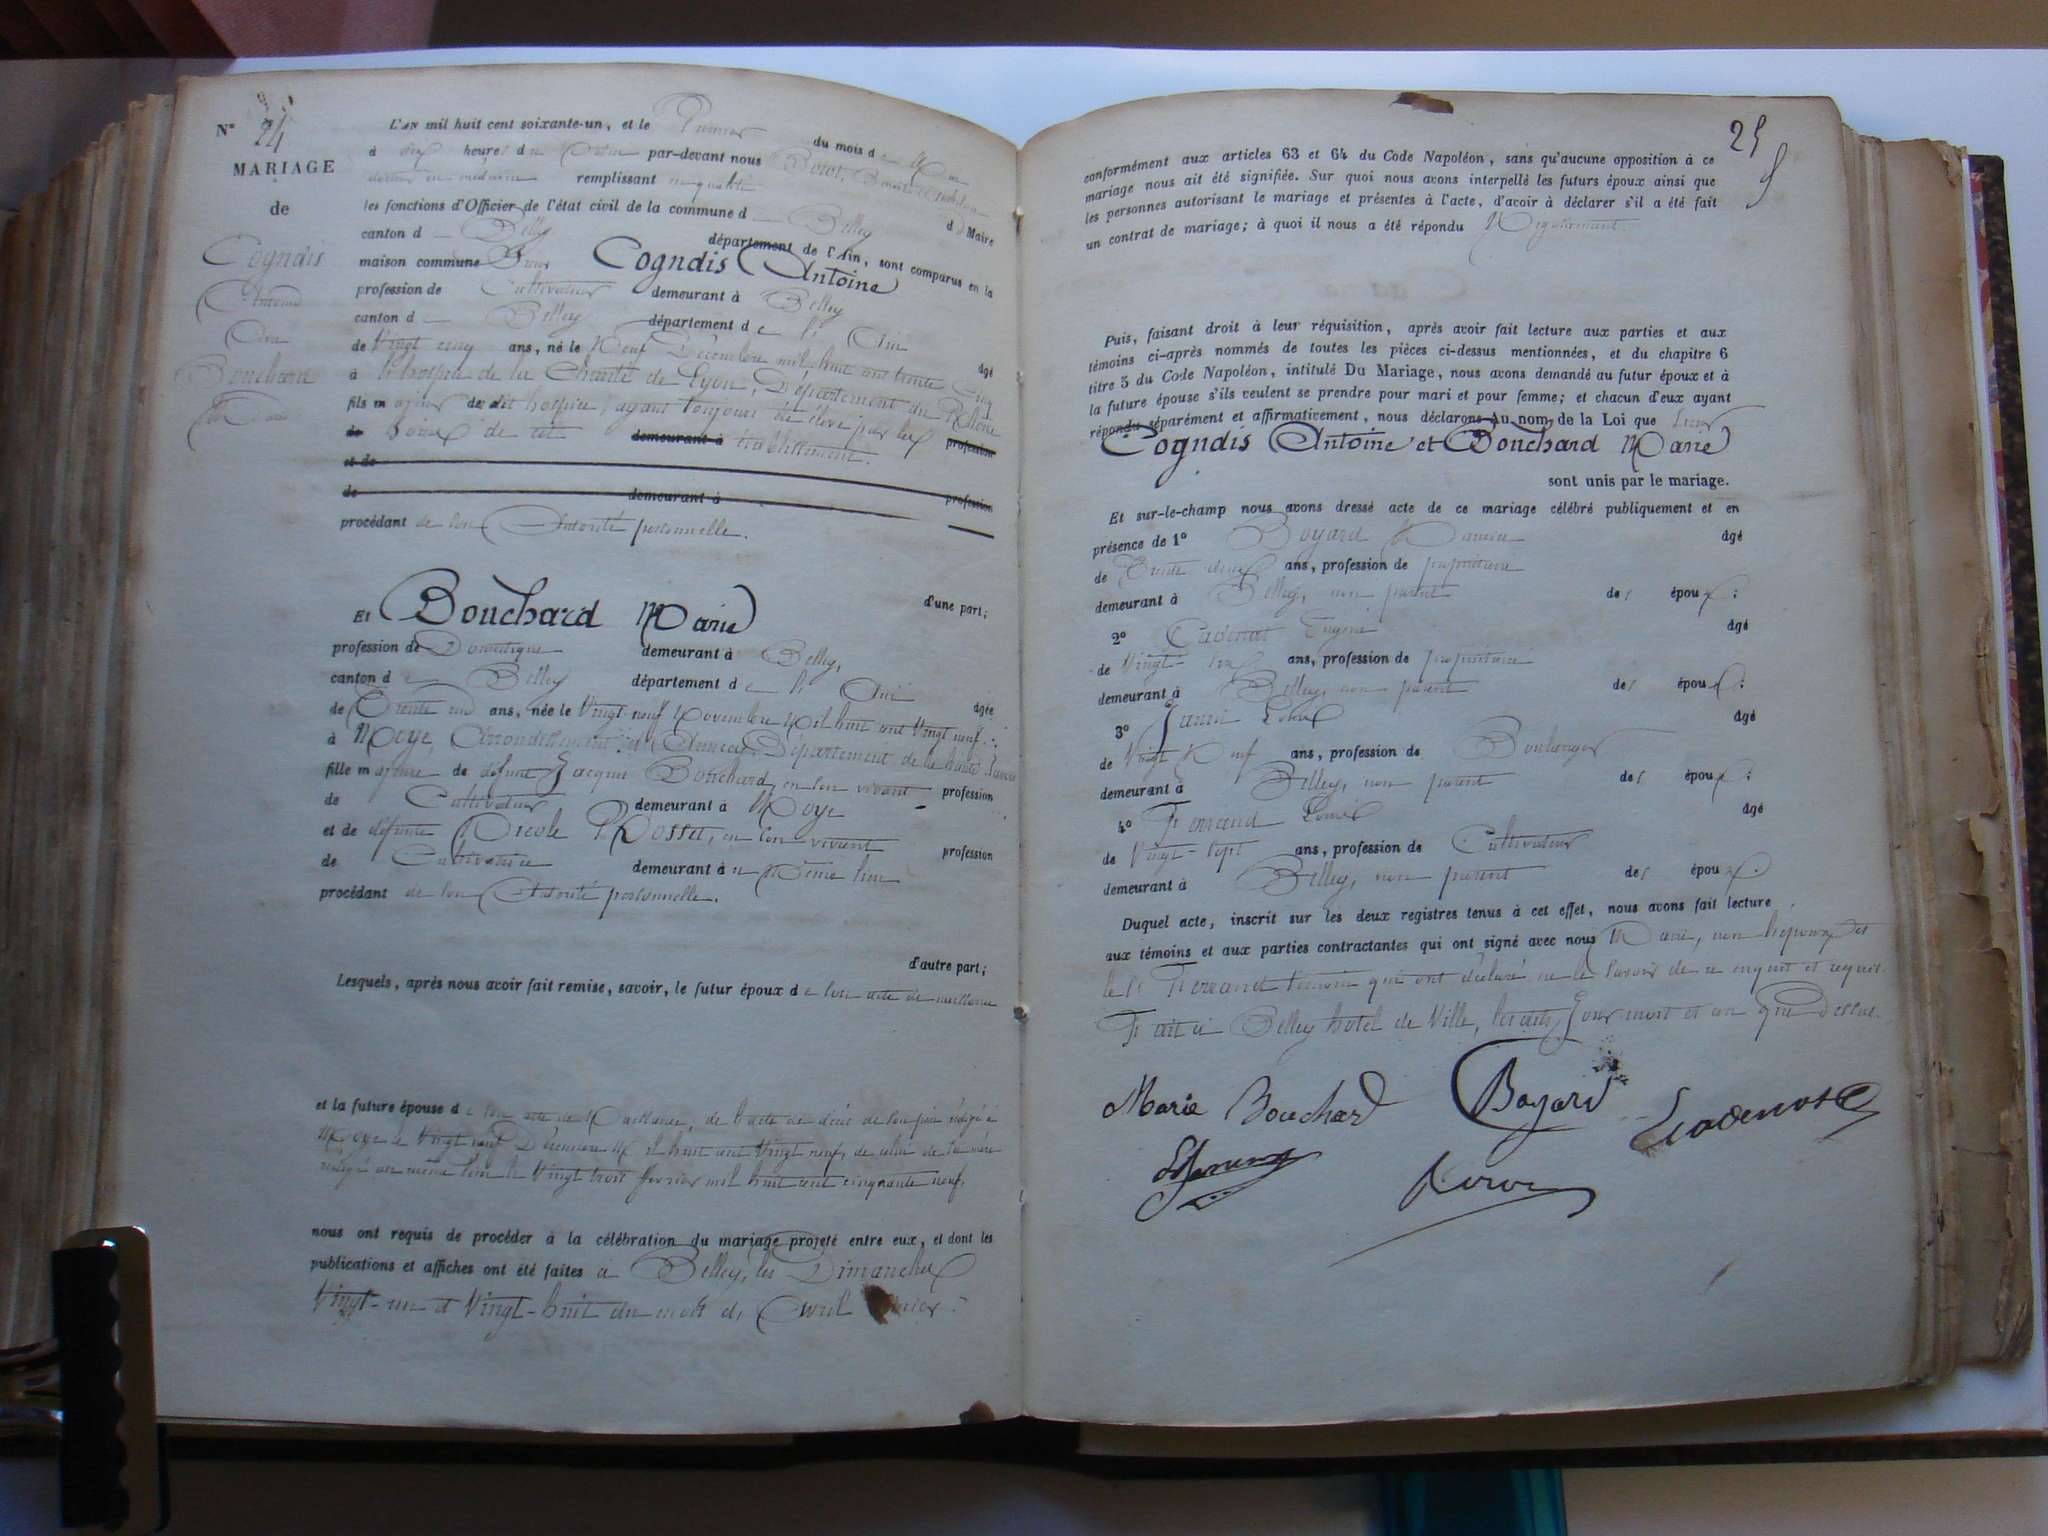 N° 24
MARIAGE
de
Cogndis
Antoine
Avec
Bouchard
Marie
L'AN mil huit cent soixante-un, et le Premier du mois de Mai
à dix heures du Matin par-devant nous
docteur en médecine remplissant en qualité d Maire
les fonctions d'Officier de l'état civil de la commune de Belley
canton de Belley département de l'Ain, sont comparus en la
maison commune Sieur Cogndis Antoine
profession de Cultivateur demeurant à Belley
canton de Belley département de l' Ain âgé
de Vingt cinq ans, né le Neuf Décembre mil huit cent trente cinq
à l'hospice de la Charité de Lyon, Département du Rhône
fils majeur de dit hospice, ayant toujours été élevé par les profession
de Soins de cet demeurant à établissement.
et de
de demeurant à profession
procédant de son Autorité personnelle.
d'une part;
Et Bouchard Marie
profession de Domestique demeurant à Belley,
canton de Belley département de l' Ain âgée
de Trente un ans, née le Vingt neuf Novembre Mil huit cent Vingt neuf
à Moye, Arrondissement d'Annecy, Département de la haute Savoie
fille majeure de défunt Jacques Bouchard, en son vivant profession
de Cultivateur demeurant à Moye
et de défunte Nicole Rosset, en son vivant profession
de Cultivatrice demeurant à u Même lieu
procédant de son Autorité personnelle.
d'autre part;
Lesquels, après nous avoir fait remise, savoir, le futur époux de son acte de naissance
et la future épouse de son acte de Naissance, de l'acte de décès de son père rédigé à
Moye le Vingt neuf Décembre Mil huit cent Vingt neuf, de celui de sa mère
rédigé au même lieu le Vingt trois février mil huit cent cinquante neuf,
nous ont requis de procéder à la célébration du mariage projeté entre eux, et dont les
publications et affiches ont été faites à Belley, les Dimanches
Vingt-un et Vingt-huit du mois d' Avril dernier.
25
conformément aux articles 63 et 64 du Code Napoléon, sans qu'aucune opposition à ce
mariage nous ait été signifiée. Sur quoi nous avons interpellé les futurs époux ainsi que
les personnes autorisant le mariage et présentes à l'acte, d'avoir à déclarer s'il a été fait
un contrat de mariage; à quoi il nous a été répondu Négativement.
Puis, faisant droit à leur réquisition, après avoir fait lecture aux parties et aux
témoins ci-après nommés de toutes les pièces ci-dessus mentionnées, et du chapitre 6
titre 5 du Code Napoléon, intitulé Du Mariage, nous avons demandé au futur époux et à
la future épouse s'ils veulent se prendre pour mari et pour femme; et chacun d'eux ayant
répondu séparément et affirmativement, nous déclarons au nom de la Loi que Sieur
Cogndis Antoine et Bouchard Marie
sont unis par le mariage.
Et sur-le-champ nous avons dressé acte de ce mariage célébré publiquement et en
présence de 1° Boyard âgé
de Trente deux ans, profession de propriétaire
demeurant à Belley, non parent des époux;
2° Cadenat Eugène âgé
de Vingt six ans, profession de propriétaire
demeurant à Belley, non parent des époux;
3° Janin âgé
de Vingt Neuf ans, profession de Boulanger
demeurant à Belley, non parent des époux;
4° Ferrand Louis âgé
de Vingt-sept ans, profession de Cultivateur
demeurant à Belley, non parent des époux.
Duquel acte, inscrit sur les deux registres tenus à cet effet, nous avons fait lecture
aux témoins et aux parties contractantes qui ont signé avec nous Maire, non l'époux et
le Sr Ferrand témoin qui ont déclaré ne le savoir de ce enquis et requis.
Fait à Belley hôtel de Ville, lesdits Jour mois et an que Dessus.
Marie Bouchard Boyard